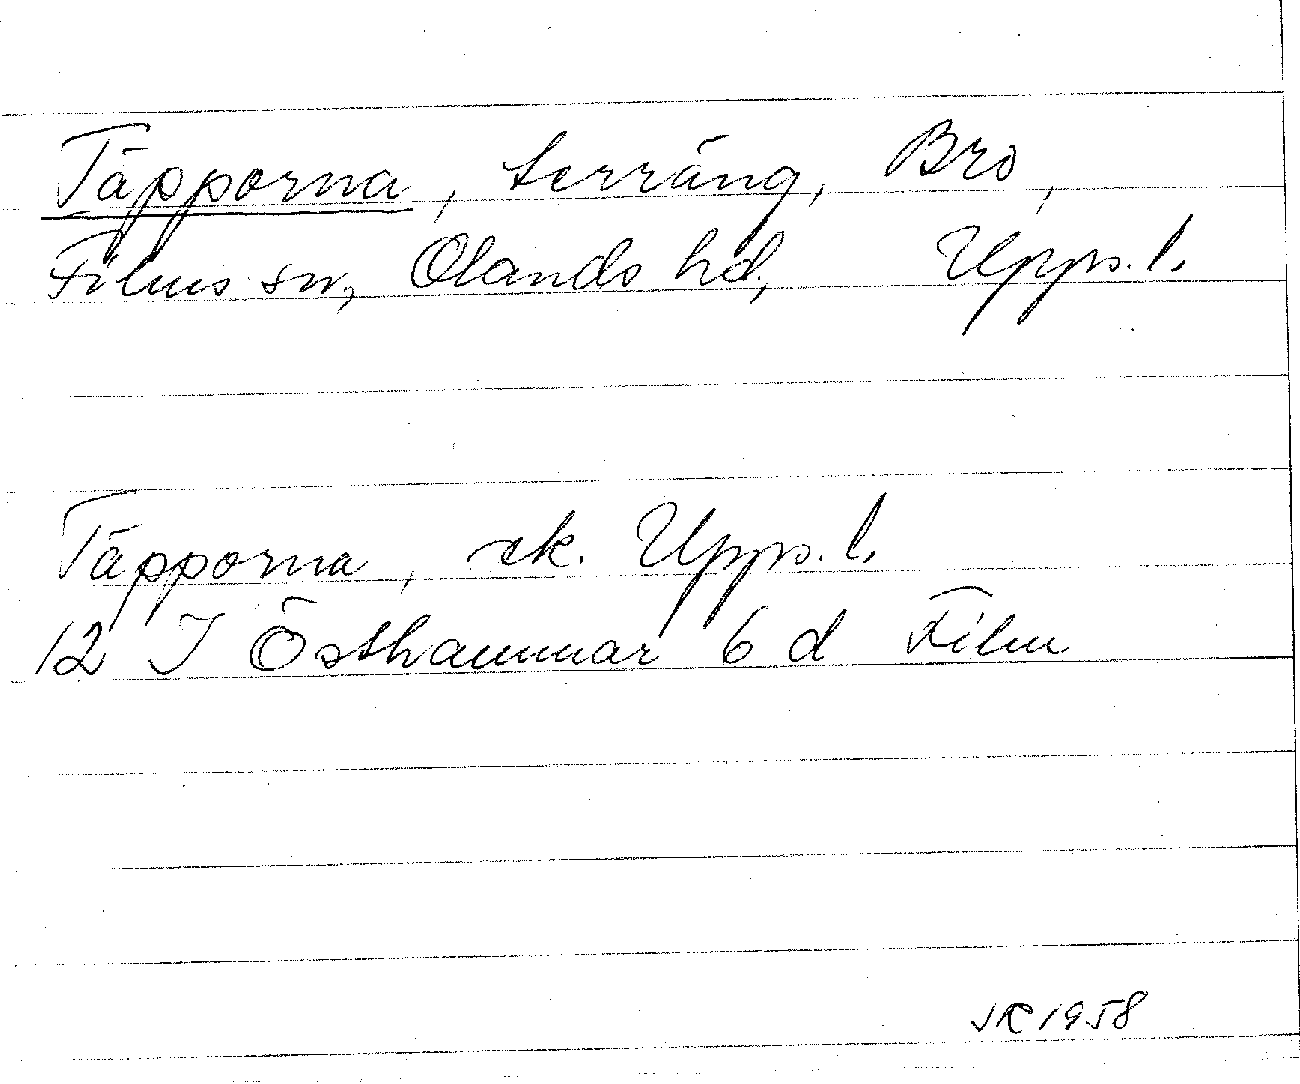 Täpporna, terräng, Bro,
Films sn, Olands hd, Upps. l.
Täpporna, ek. Upps. l.
12 I Östhammar 6 d Film
JR 1958